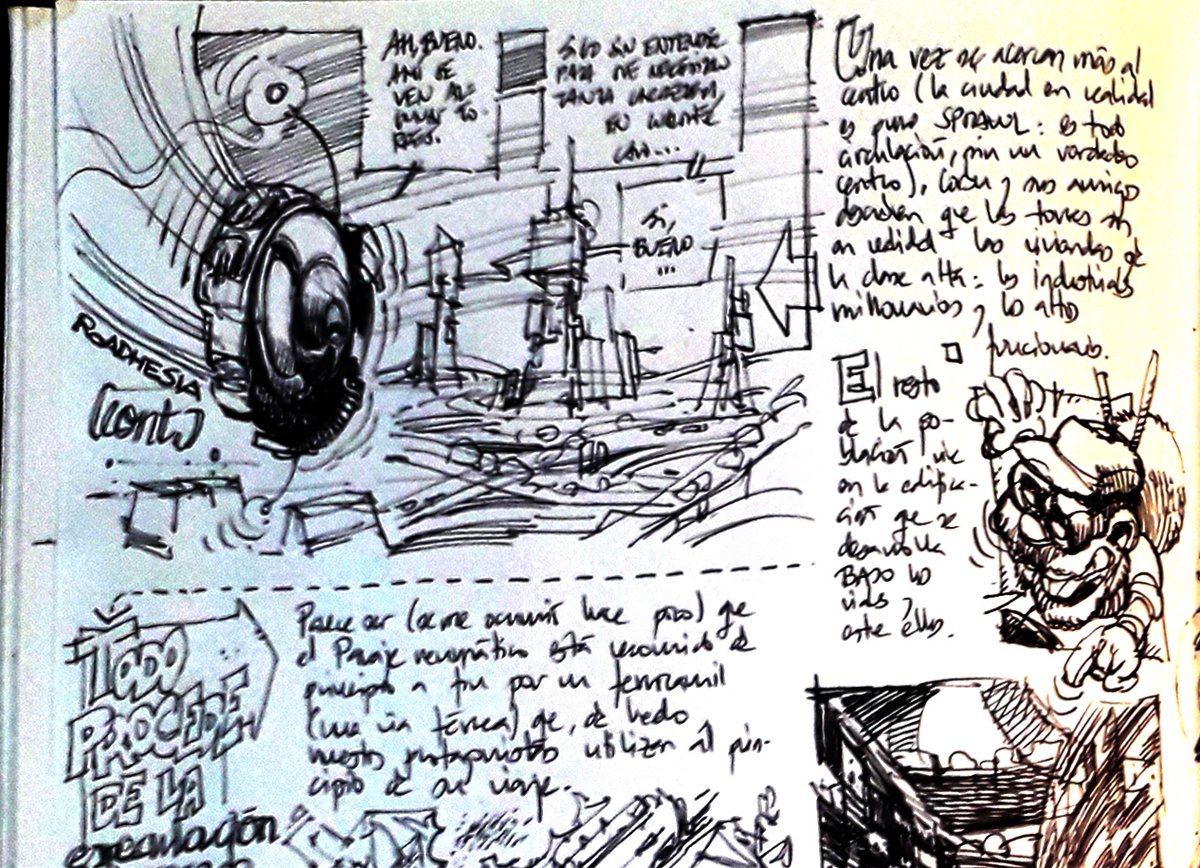 AH, BUENO.
AHÍ SE
VEN AL-
SIGO SIN ENTENDER
PARA
TANTA
EN
SÍ,
BUENO
...
Una vez se acercan más al
centro (la ciudad en realidad
es puro SPRAWL: es todo
circulación, sin un verdadero
centro), y sus amigos
descubren que las torres son
en realidad las viviendas de
la clase alta: los industriales
millonarios y los altos
funcionarios.
El resto
de la po-
blación vive
en la edifica-
ción que se
desarrolla
BAJO las
vías y
entre ellas.
ROADHESIA
(cont.)
TODO
PROCEDE
DE LA
excavación
Parece ser (se me ocurrió hace poco) que
el Paraje neumático está recorrido de
principio a fin por un ferrocarril
(una vía férrea) que, de hecho
nuestros protagonistas utilizan al prin-
cipio de su viaje.